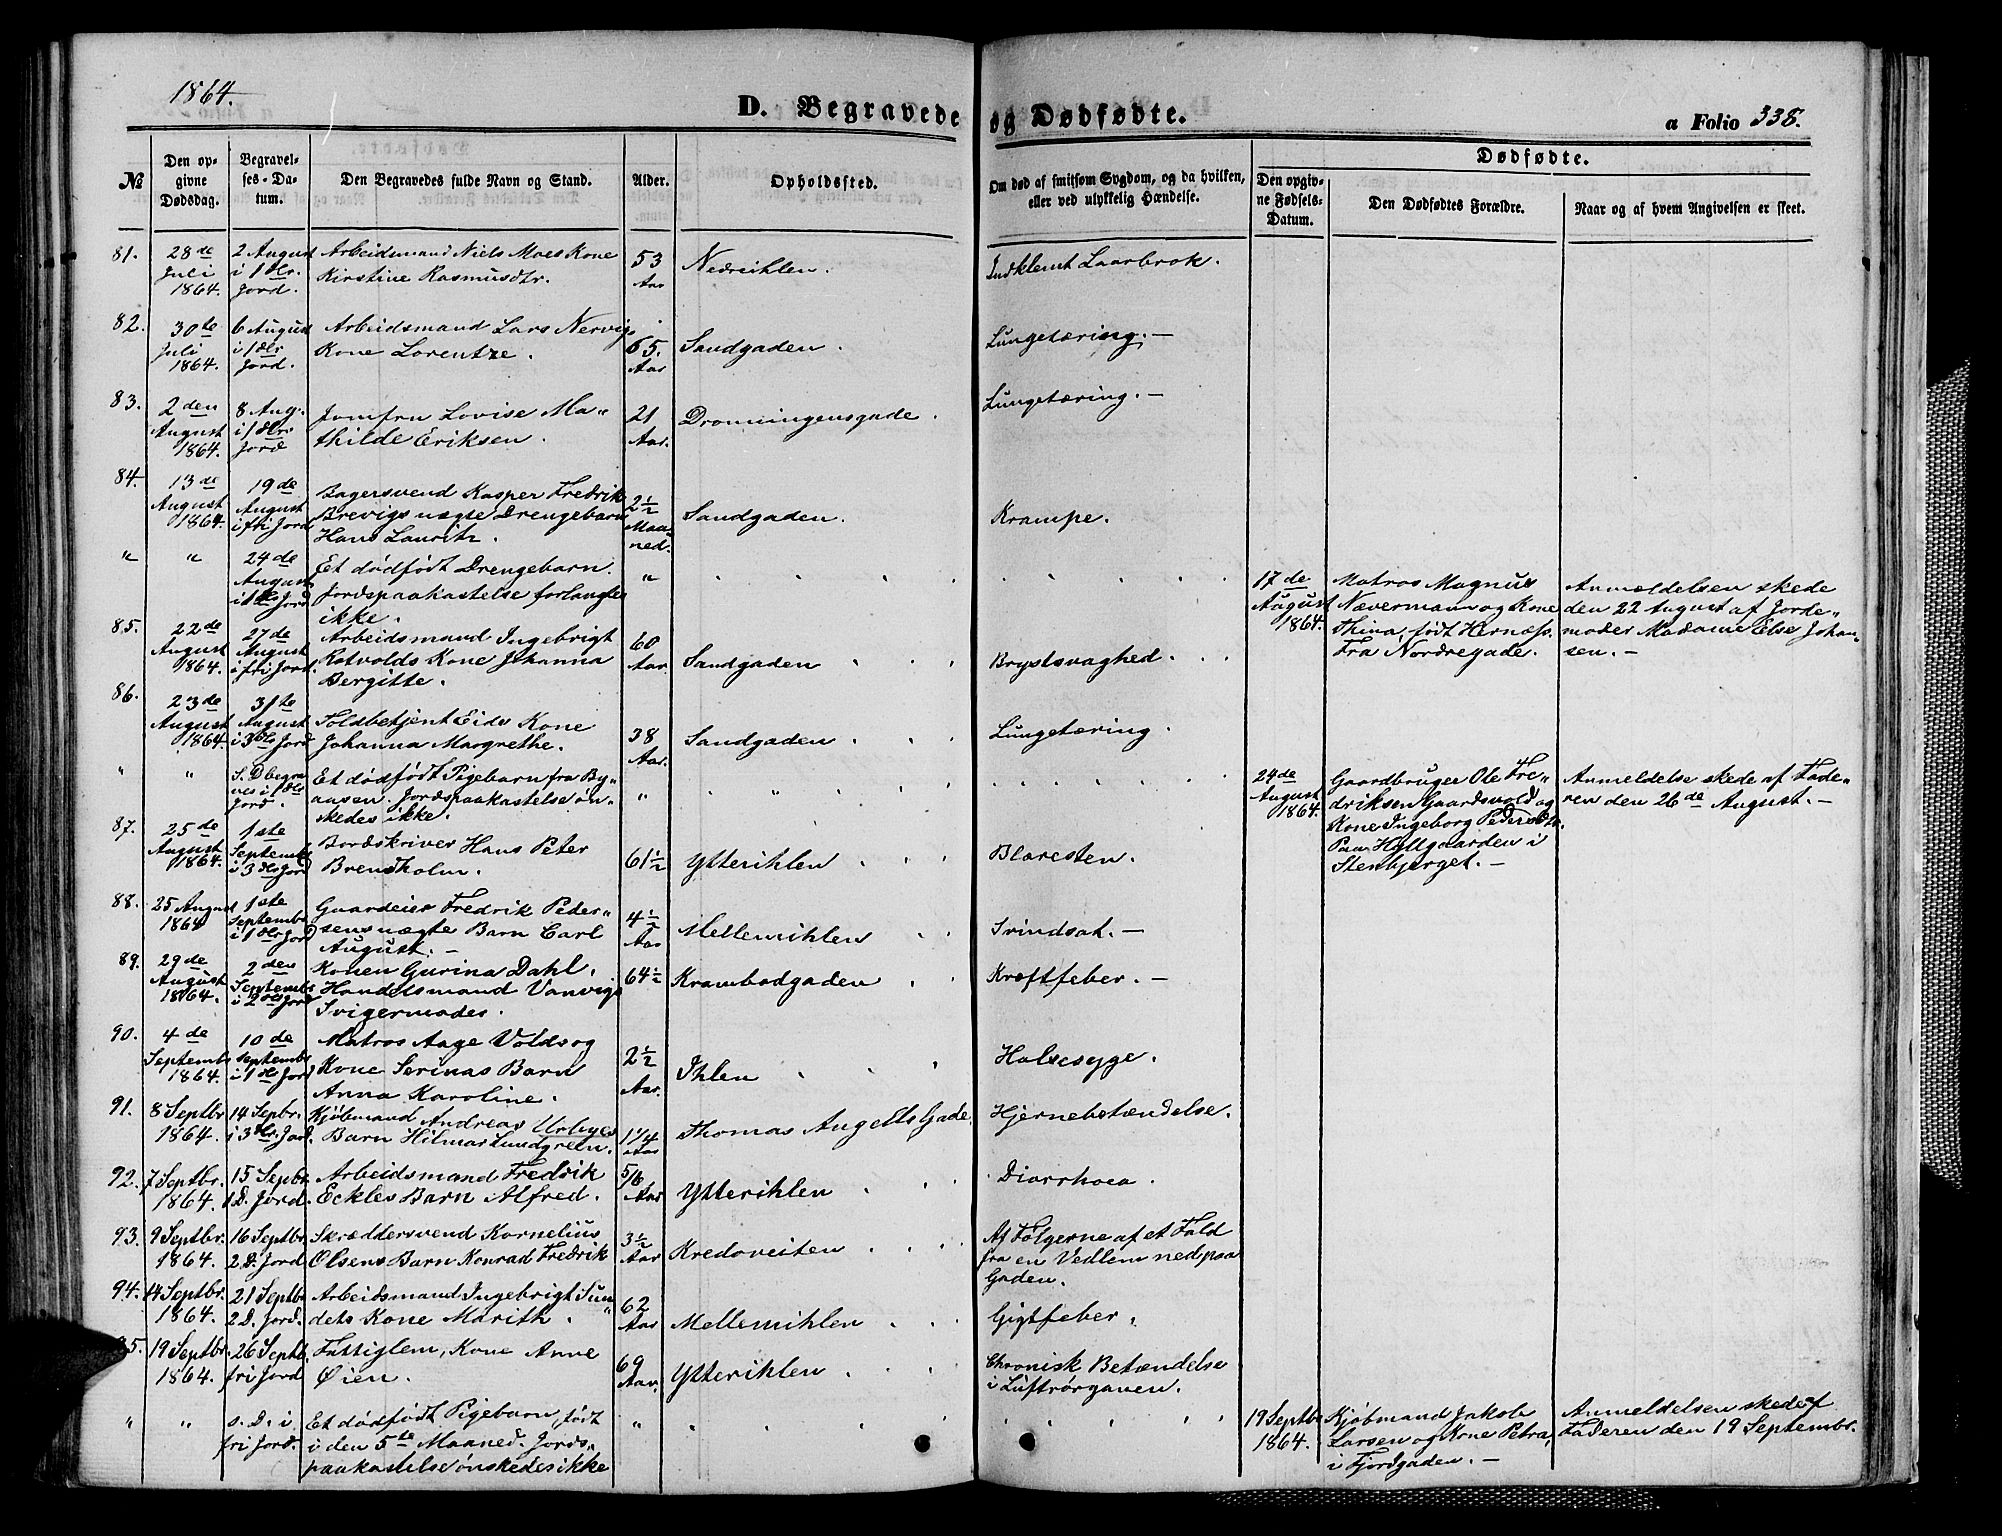 1864.
D. Begravede og Dødfødte.
a Folio 338.
No
Den opgivne Dødsdag.
Begravelses-Datum.
Den Begravedes fulde Navn og Stand.
Alder.
Opholdssted.
Om død af smitsom Sygdom, og da hvilken, eller ved ulykkelig Hændelse.
Dødfødte.
Den opgivne Fødsels-Datum.
Den Dødfødtes Forældre.
Naar og af hvem Angivelsen er skeet.
81. 28de Juli 1864. 2 August i 1 Dlr. Jord. Arbeidsmand Niels Moes Kone Kirstine Rasmusdtr. 53 Aar Nedreihlen. Indklemt Laarbrok.
82. 30te Juli 1864. 6 August i 1 Dlr Jord. Arbeidsmand Lars Nervigs Kone Lorentze. 65. Aar Sandgaden. Lungetæring. —
83. 2den August 1864. 8 Aug. i 1 Dlr Jord Jomfru Lovise Mathilde Eriksen. 21 Aar. Dronningensgade. Lungetæring. —
84. 13de August 1864. 19de August i fri Jord Bagersvend Kasper Fredrik Brevigs ægte Drengebarn Hans Lauritz. 2½ Maaned. Sandgaden. Krampe.
" " 24de August i 1 Dlrs Jord Et dødfødt Drengebarn. Jordspaakastelse forlangtes ikke. " 17de August 1864. Matros Magnus Nævermann og Kone Thina, født Hernæss. Fra Nordregade. Anmeldelsen skede den 22 August af Jordemoder Madame Else Johansen. —
85. 22de August 1864. 27de August i fri Jord. Arbeidsmand Ingebrigt Rotvolds Kone Johanna Bergitte. 60 Aar. Sandgaden Brystsvaghed.
86. 23de August 1864. 31te August i 3 Dlrs Jord Toldbetjent Eides Kone Johanna Margrethe. 38 Aar. Sandgaden Lungetæring.
" " S. D begraves i 1 Dlr Jord. Et dødfødt Pigebarn fra Byaasen. Jordspaakastelse ønskedes ikke. " 24de August 1864. Gaardbruger Ole Fredriksen Gaardsvold og Kone Ingeborg Pedersdtr. Paa Hyllgaarden i Stenbjerget. — Anmeldelse skede af Faderen den 26de August. —
87. 25de August 1864. 1ste Septembr i 3 Dlrs Jord Bordskriver Hans Peter Brensholm. 61½ Ytterihlen Blæresten.
88. 25 August 1864 1ste Septembr i 1 Dlr Jord Gaardeier Fredrik Pedersens ægte Barn Carl August. — 4½ Aar Mellemihlen Svindsot. —
89. 29de August 1864. 2den Septembr i 2 Dlrs Jord Konen Gurina Dahl, Handelsmand Vanvigs Svigermoder. 64½ Krambodgaden Kræftfeber. —
90. 4de Septembr 1864. 10de Septembr i 1 Dlr Jord Matros Aage Volds og Kone Serinas Barn Anna Karoline. 2½ Aar. Ihlen Halssyge.
91. 8 Septbr 1864. 14 Septbr. i 3 Dlr. Jord. Kjøbmand Andreas Urbyes Barn Hilmar Lundgreen. 1¼ Aar Thomas Angells Gade. Hjernebetændelse.
92. 7 Septbr. 1864. 15 Septbr 1 D. Jord. Arbeidsmand Fredrik Eckles Barn Alfred. 5/6 Aar Ytterihlen Diarrhoea.
93. 9 Septbr. 1864. 16 Septbr. 2 D. Jord Skræddersvend Kornelius Olsens Barn Konrad Fredrik 3½ Aar Kredoveiten Af Følgerne af et Fald fra en Vedlem ned paa Gaden.
94. 14 Septbr. 1864. 21 Septbr 2 D. Jord. Arbeidsmand Ingebrigt Sundets Kone Marith. 62 Aar Mellemihlen Gigtfeber.
95. 19 Septbr. 1864. 26 Septb. fri Jord Fattiglem, Kone Anne Øien. 69 Aar. Ytterihlen Chronisk Betændelse i Luftrørgaven.
" " s. D. i fri Jord. Et dødfødt Pigebarn, født i den 5te Maaned. Jordspaakastelse ønskedes ikke " 19 Septbr 1864. Kjøbmand Jakob Larsen og Kone Petra, i Fjordgaden. — Anmeldelsen skede af Faderen den 19 Septembr.